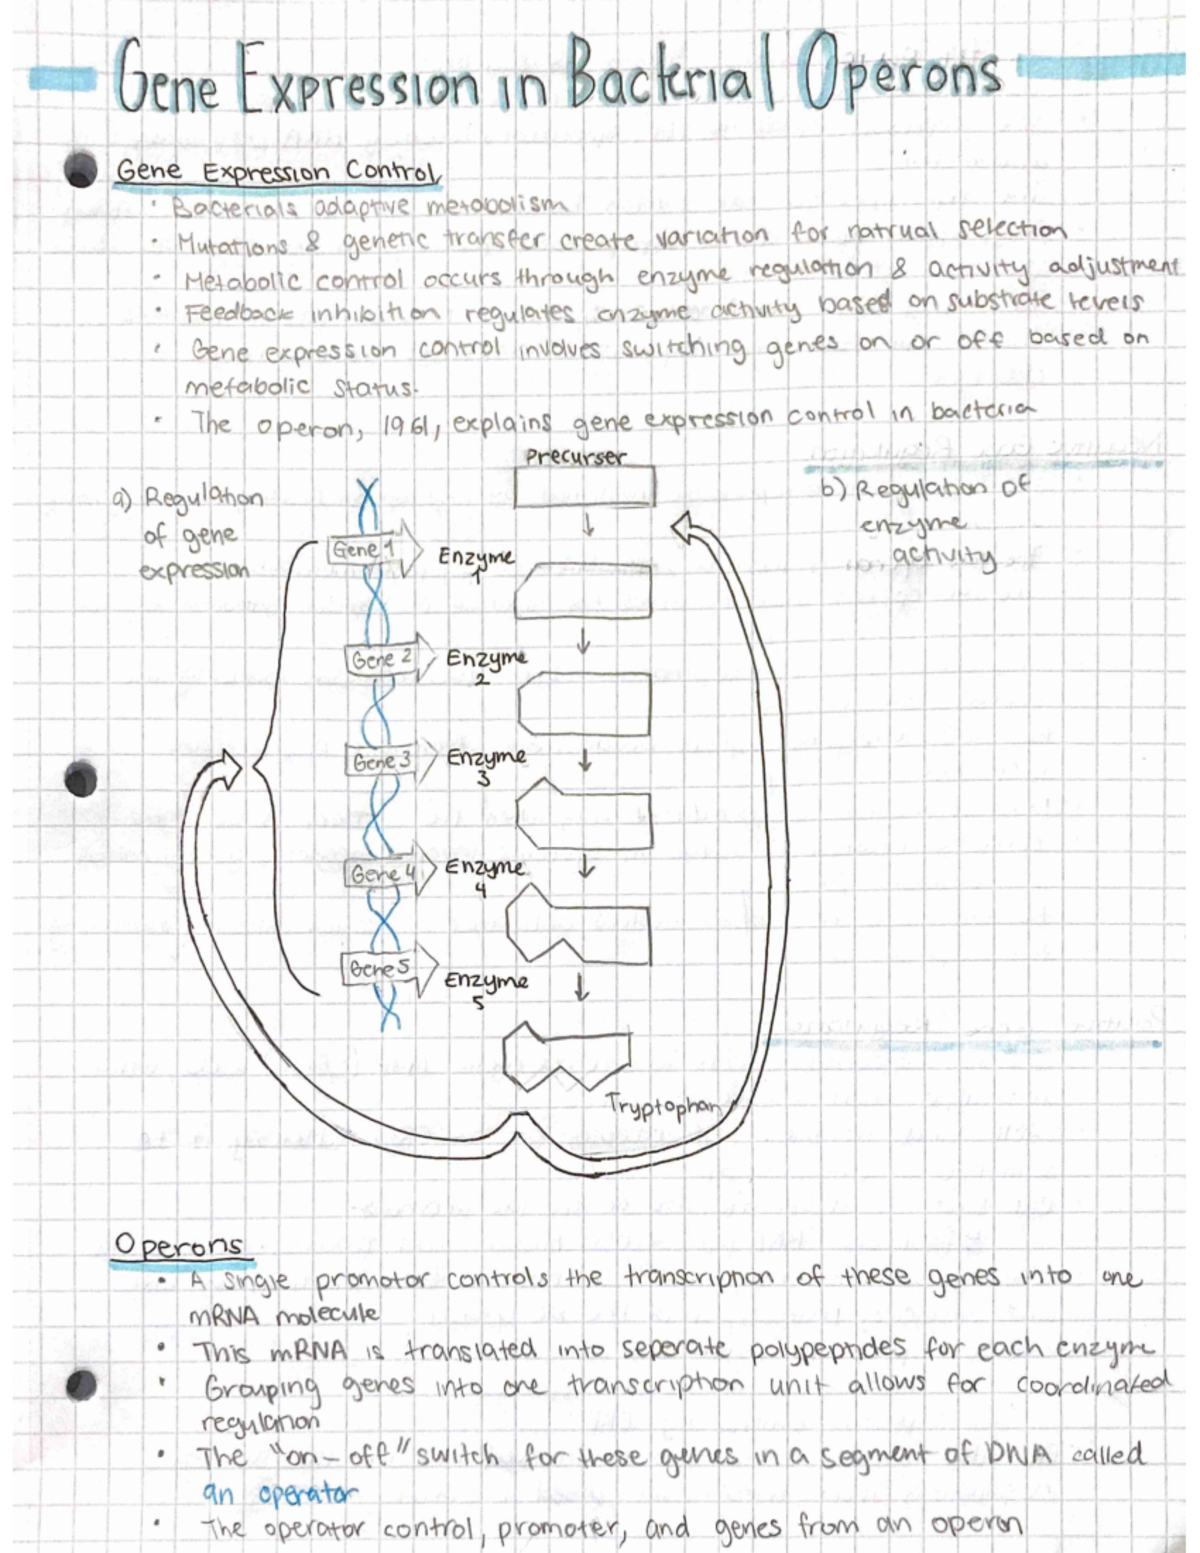 Gene Expression in Bacterial Operons
Gene Expression Control
· Bacterials adaptive metabolism
· Mutations & genetic transfer create variation for natrual selection
· Metabolic control occurs through enzyme regulation & activity adjustment
· Feedback inhibition regulates enzyme activity based on substrate levels
· Gene expression control involves switching genes on or off based on
metabolic status.
· The operon, 1961, explains gene expression control in bacteria
Precurser
a) Regulation
of gene
expression
b) Regulation of
enzyme
activity
Gene 1
Enzyme
1
Gene 2
Enzyme
2
Gene 3
Enzyme
3
Gene 4
Enzyme
4
Gene 5
Enzyme
5
Tryptophan
Operons
· A single promotor controls the transcription of these genes into one
mRNA molecule
· This mRNA is translated into seperate polypeptides for each enzyme
· Grouping genes into one transcription unit allows for coordinated
regulation
· The "on-off" switch for these genes in a segment of DNA called
an operator
· The operator control, promoter, and genes from an operon